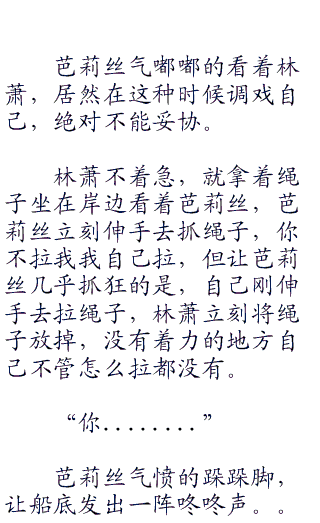 芭莉丝气嘟嘟的看着林
萧，居然在这种时候调戏自
己，绝对不能妥协。
林萧不着急，就拿着绳
子坐在岸边看着芭莉丝，芭
莉丝立刻伸手去抓绳子，你
不拉我我自己拉，但让芭莉
丝几乎抓狂的是，自己刚伸
手去拉绳子，林萧立刻将绳
子放掉，没有着力的地方自
己不管怎么拉都没有。
“你........”
芭莉丝气愤的跺跺脚，
让船底发出一阵咚咚声。。